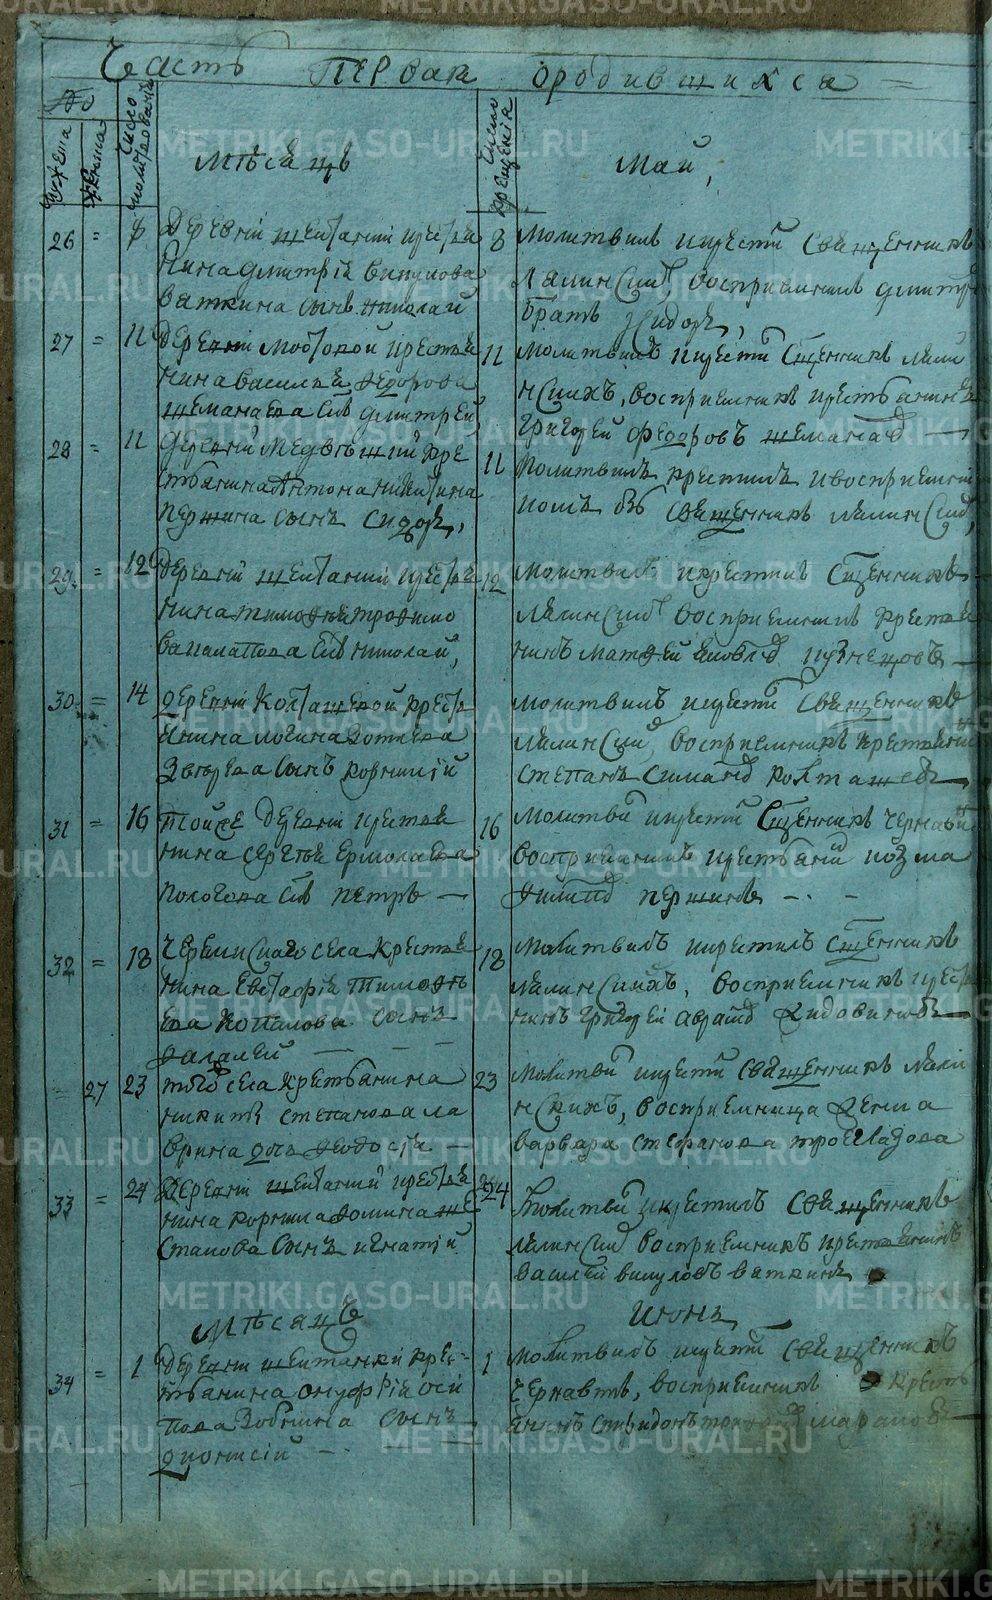 METRIKI.GASO-URAL.RU
Часть первая ородившихся
Но
мужеска
женска
число молитвования
число крещения
Мѣсяцъ
Май,
26 = 8
Деревни Шеитанки крестья
нина Дмитрія Викулова
Вяткина сынъ Николай
8
молитвилъ икрести священникъ
Лялинский, восприемникъ Дмитр
братъ Сидоръ,
27 = 11
Деревни Мостовой крестья
нина Василья Федорова
Шеманаева сынъ Дмитрей,
11
молитвилъ икрести сщенникъ Ляли
нскихъ, восприемникъ крестьянинъ
Григорей Федоровъ Шеманаев
28 = 11
деревни Медвѣшки кре
стьянина Антона Никитина
Першина сынъ Сидоръ,
11
Молитвилъ крестилъ ивосприемни
комъ бъ священникъ Лялинский
29 = 12
деревни Шеитанки крестья
нина Тимофѣя Трофимо
ва Палапова сынъ Николай,
12
молитвилъ икрестилъ сщенникъ
Лялинский восприемникъ крестья
нинъ Матфей Яковлев Кузнецовъ
30 = 14
деревни Колташевой кресть
янина Логина Зотеева
Зверева сынъ Корнилій
молитвилъ икрести священникъ
Лялинский, восприемникъ крестьянин
Степанъ Симанов Колташевъ
31 = 16
Тойже деревни крестья
нина Сергѣя Ермолаева
Пологова сынъ Петръ
16
молитви икрести сщенникъ Чернави
восприемникъ крестьяни Козма
Филипов Першинъ
32 = 18
Черемискаго села крестья
нина Евстафія Тимофѣ
ева Копалова сынъ
Фалалей
18
молитвилъ икрестилъ сщенникъ
Лялинскихъ, восприемникъ крестья
нинъ Григорей
= 27 23
того села крестьянина
Никиты Степанова Ла
врина дочь Феодосія
23
молитви икрести священникъ Ляли
нскихъ, восприемница девица
Варвара Стефанова
33 = 24
деревни Шеитанки крестья
нина Корнила Фомина Ше
стакова сынъ Игнатій
24
молитви икрестилъ священникъ
Лялинский восприемникъ крестьянинъ
Василей Викуловъ Вяткинъ
Мѣсяцъ
Июнь
34 = 1
деревни Шеитанки кре-
стьянина Онуфрія Оси
пова Зобнина сынъ
Дионисій
1
молитвилъ икрести священникъ
Чернавинъ, восприемникъ крестья
янинъ Спиридонъ